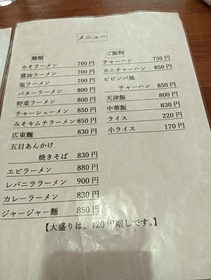 メニュー
麺類
みそラーメン 700円
醤油ラーメン 700円
塩ラーメン 700円
バターラーメン 800円
野菜ラーメン 800円
チャーシューメン 850円
みそキムチラーメン 850円
広東麺 830円
五目あんかけ
焼きそば 830円
エビラーメン 880円
レバニララーメン 900円
カレーラーメン 830円
ジャージャー麺 850円
ご飯物
チャーハン 750円
カニチャーハン 850円
ビビンバ風
チャーハン 850円
天津飯 800円
中華飯 830円
ライス 220円
小ライス 170円
【大盛りは、120円増しです。】